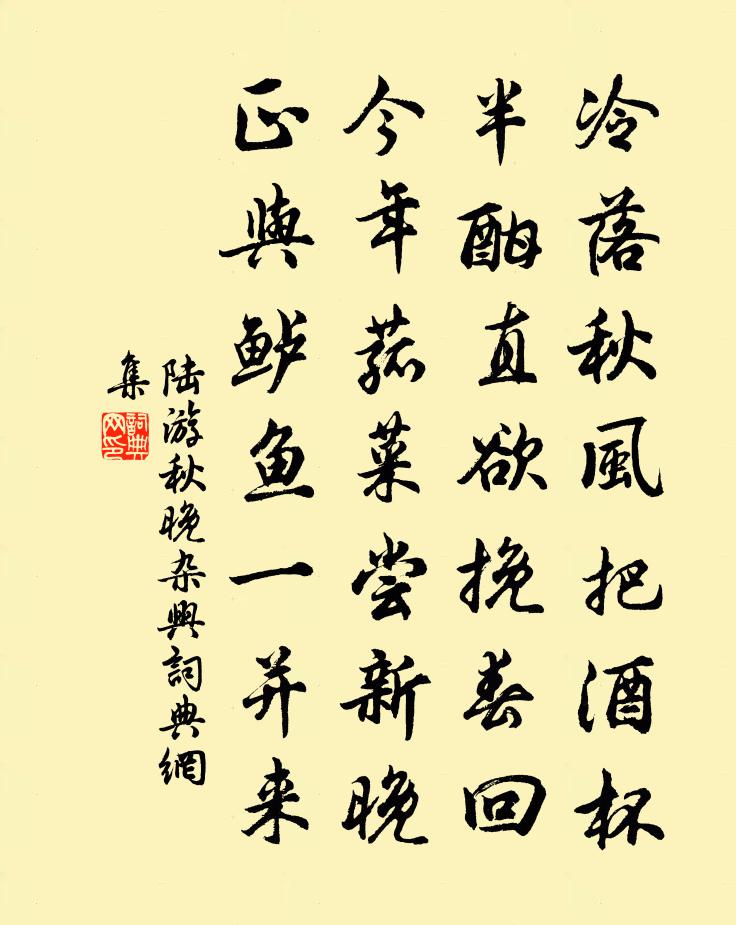 冷落秋風把酒杯
半酣直欲挽春回
今年菰菜尝新晚
正與鲈鱼一并来
陆游秋晚杂興詞典網
集
詞典
网印